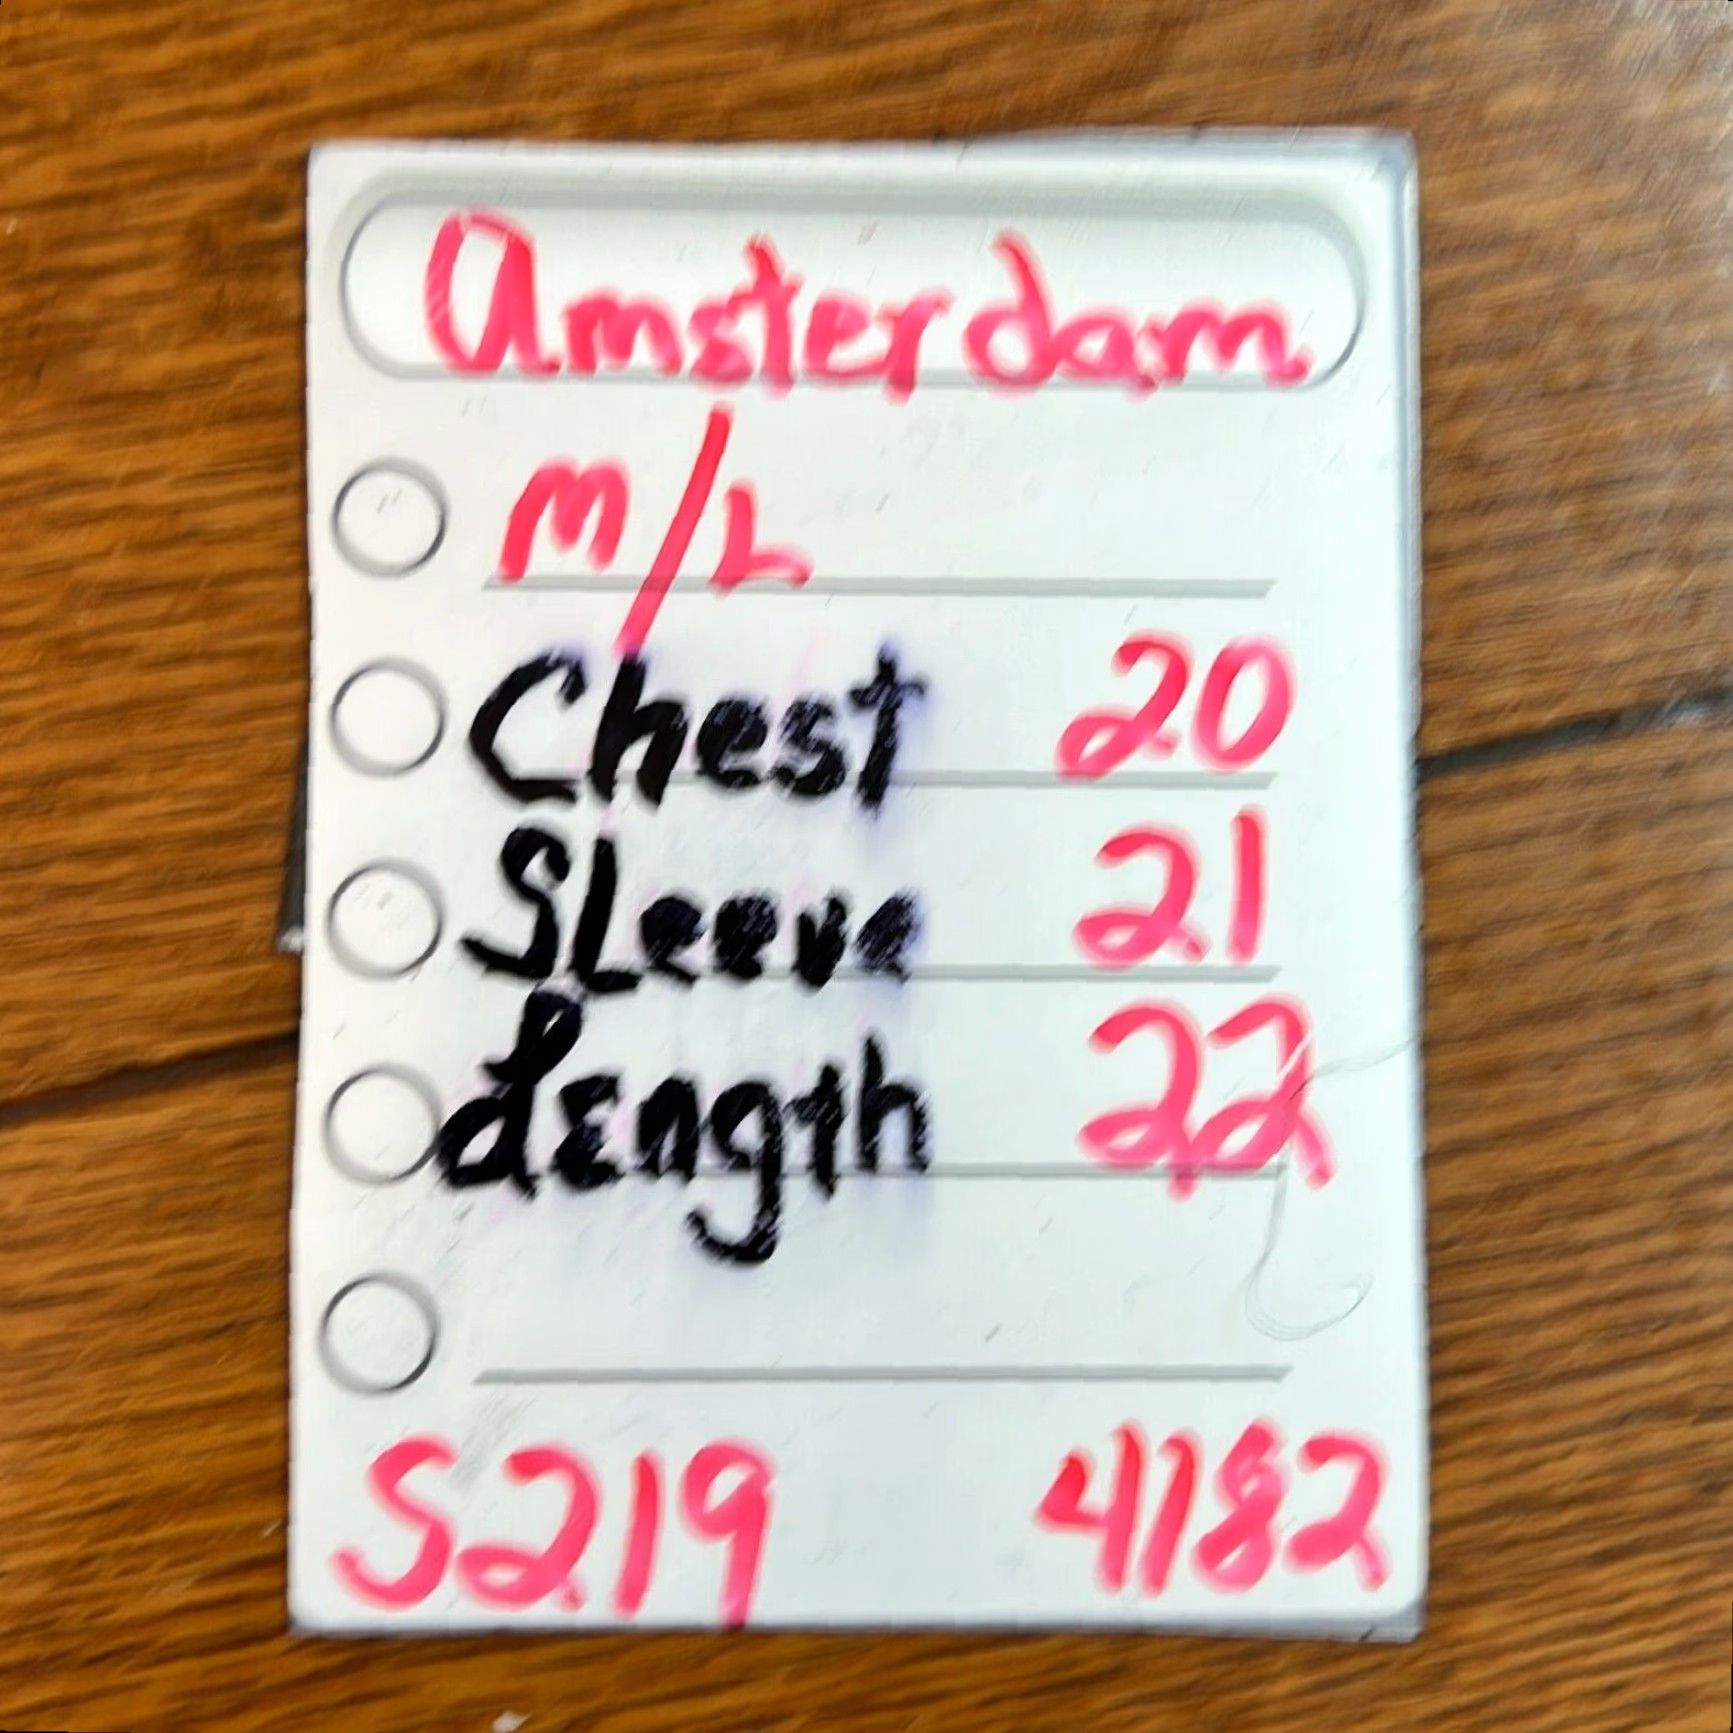 Amsterdam
M/L
Chest 20
SLeeve 21
Length 22
S219 4182